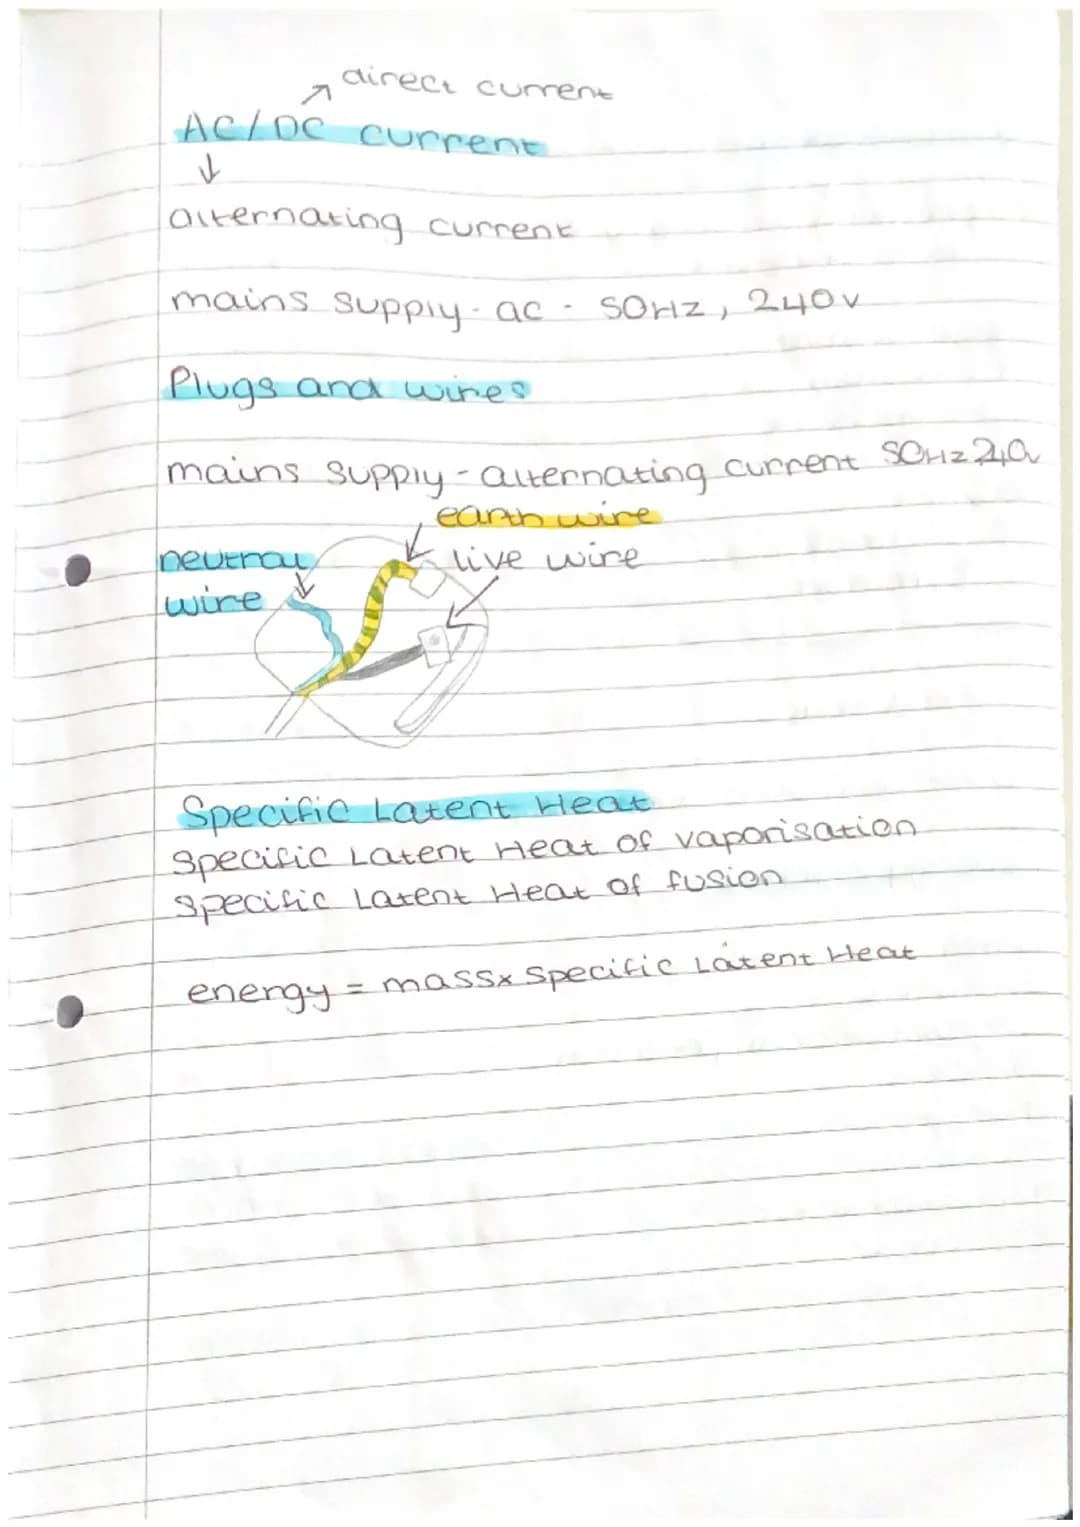 direct current
AC/DC current
alternating current
mains supply - ac - 50Hz, 240v
Plugs and wires
mains supply - alternating current 50Hz 240v
earth wire
neutral
wire
live wire
Specific Latent Heat
Specific Latent Heat of vaporisation
Specific Latent Heat of fusion
energy = mass x Specific Latent Heat